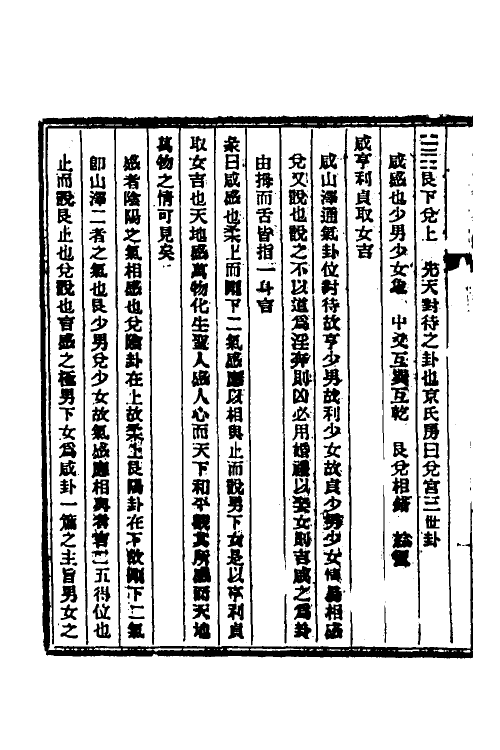 ䷞艮下兌上　先天對待之卦也京氏房曰兌宮三世卦
咸感也少男少女象　中爻互巽互乾　艮兌相錯　綜恆
咸亨利貞取女吉
咸山澤通氣卦位對待故亨少男故利少女故貞少男少女情易相感
兌又說也說之不以道爲淫奔則凶必用婚禮以娶女則吉咸之爲卦
由拇而舌皆指一身言
彖曰咸感也柔上而剛下二氣感應以相與止而說男下女是以亨利貞
取女吉也天地感萬物化生聖人感人心而天下和平觀其所感而天地
萬物之情可見矣
感者陰陽之氣相感也兌陰卦在上故柔上艮陽卦在下故剛下二氣
卽山澤二者之氣也艮少男兌少女故氣感應相與者言二五得位也
止而說艮止也兌說也言感之極男下女爲咸卦一篇之主旨男女之